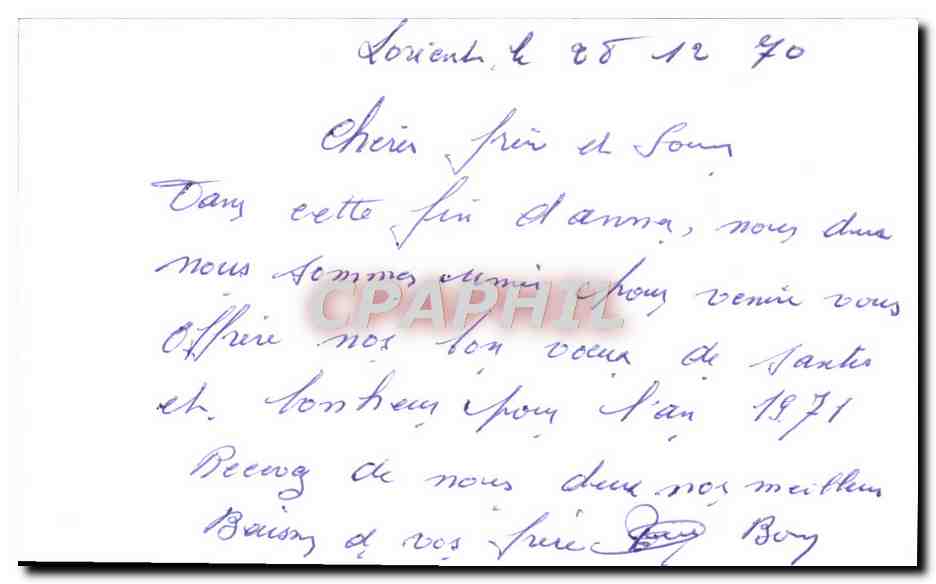 Lorient le 28 12 70
Chérs frère et Soeur
Dans cette fin d'anné, nous deux
nous sommes unis pour venir vous
CPAPHIL
offrire nos bon voeux de santés
et bonheur pour l'an 1971
Recevez de nous deux nos meilleurs
Baisers de vos frère